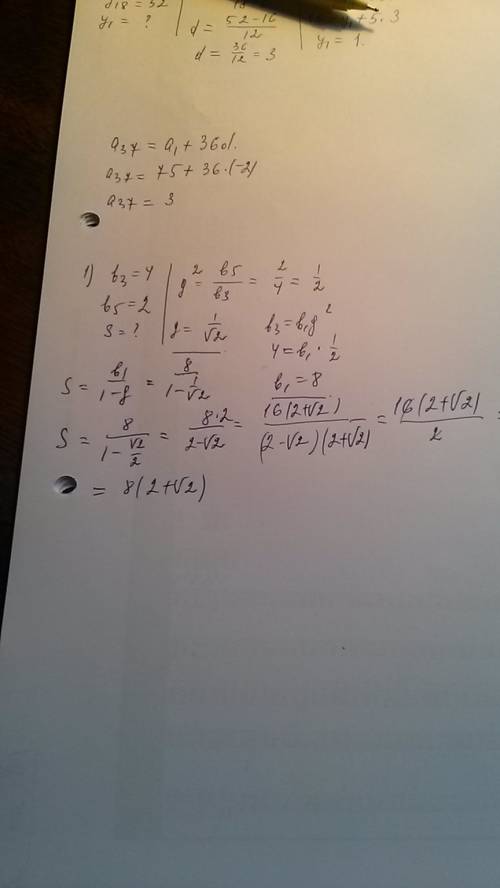 = 52
y₁ = ?
d = \frac{52-16}{12}
+ 5·3
y₁ = 1.
d = \frac{36}{12} = 3
a₃₇ = a₁ + 36d.
a₃₇ = 75 + 36·(-2)
a₃₇ = 3
1) b₃ = 4
b₅ = 2
S = ?
g² = \frac{b₅}{b₃} = \frac{2}{4} = \frac{1}{2}
g = \frac{1}{√2}
b₃ = b₁g²
4 = b₁ · \frac{1}{2}
b₁ = 8
S = \frac{b₁}{1-g} = \frac{8}{1-\frac{1}{√2}}
S = \frac{8}{1-\frac{√2}{2}} = \frac{8·2}{2-√2} = \frac{16(2+√2)}{(2-√2)(2+√2)} = \frac{16(2+√2)}{2} =
= 8(2+√2)